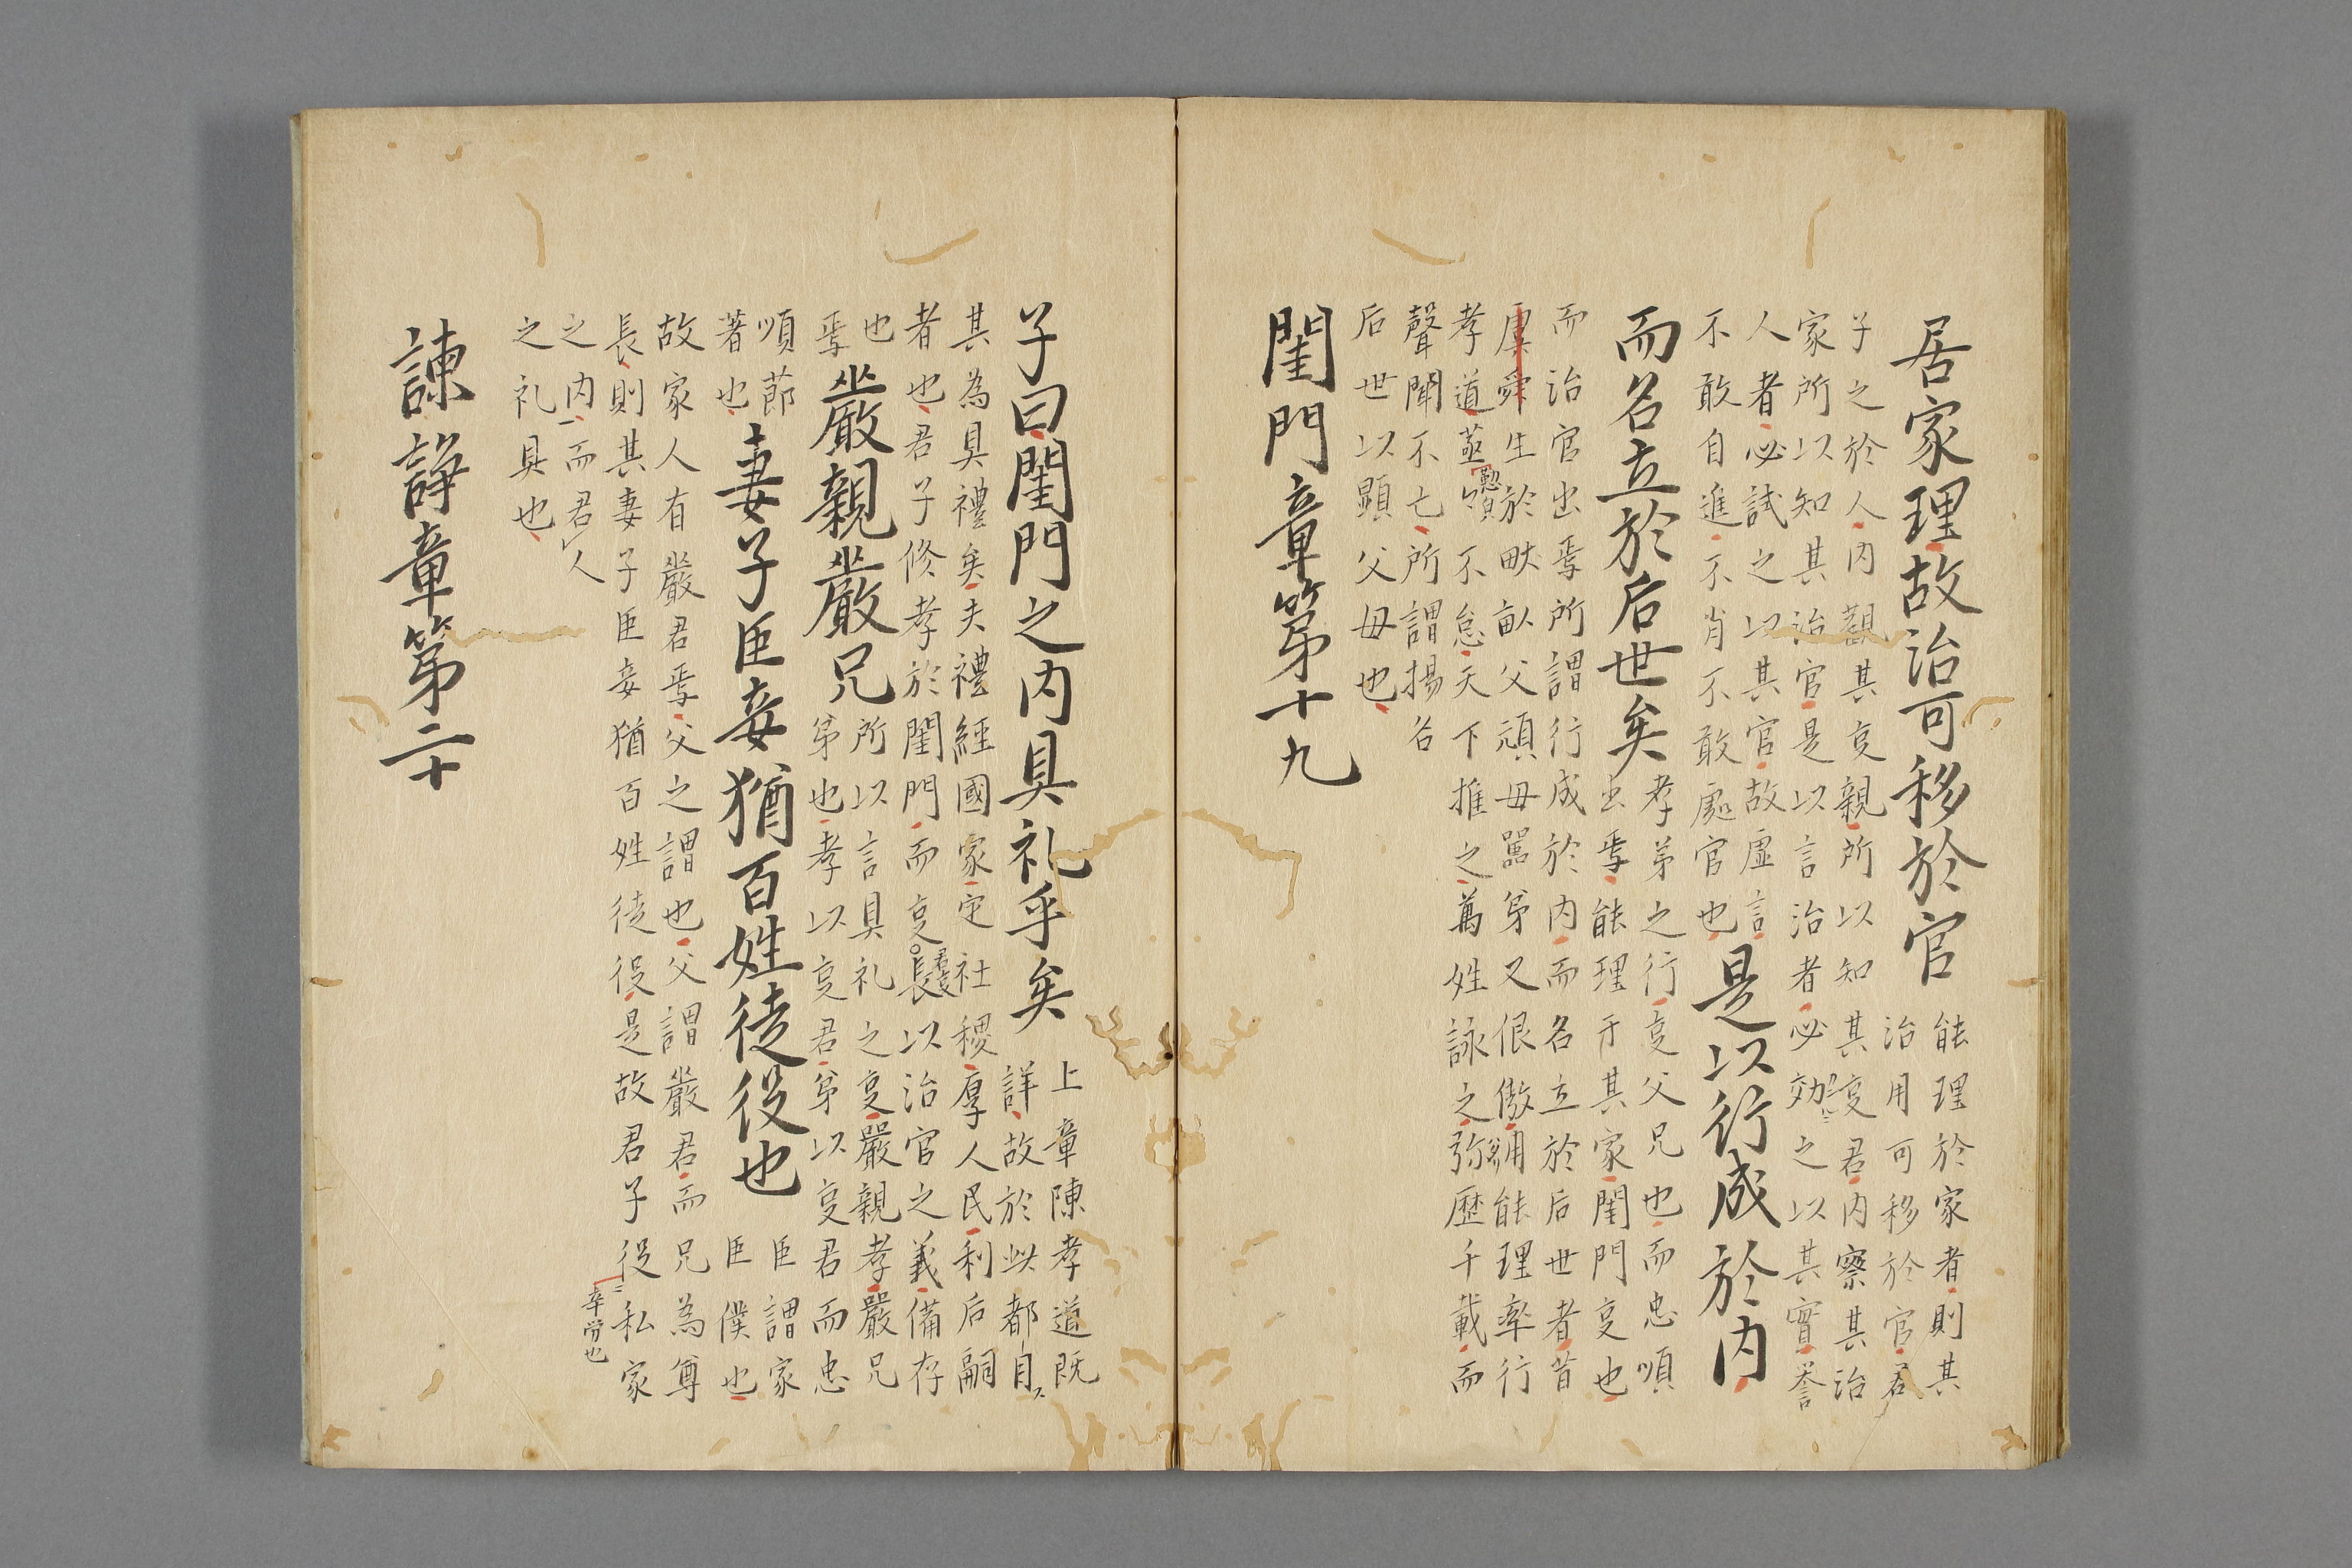 居家理故治可移於官
能理於家者則其
治用可移於官君
子之於人内觀其㕝親所以知其㕝君内察其治
家所以知其治官是以言治者必効之以其實譽
人者必試之以其官故虚言
不敢自進不肖不敢處官也
是以行成於内
而名立於后世矣
孝弟之行㕝父兄也而忠順
出焉能理于其家閨門㕝也
而治官出焉所謂行成於内而名立於后世者首
虞舜生於畎畝父頑母嚚弟又佷傲能理率行
孝道蒸不怠天下推之萬姓詠之弥歷千載而
聲聞不亡所謂揚名
后世以顕父母也
閨門章第十九
子曰閨門之内具礼乎矣
上章陳孝道既
詳故於此都自
其為具禮矣夫禮經國家定社稷厚人民利后嗣
者也君子修孝於閨門而㕝長以治官之義備存
焉
也
嚴親嚴兄
所以言具礼之㕝嚴親孝嚴兄
弟也孝以㕝君弟以㕝君而忠
順莭
著也
妻子臣妾猶百姓徒役也
臣謂家
臣僕也
故家人有嚴君焉父之謂也父謂嚴君而兄為尊
長則其妻子臣妾猶百姓徒役是故君子役私家
辛労也
之内而君人
之礼具也
諫諍章第二十